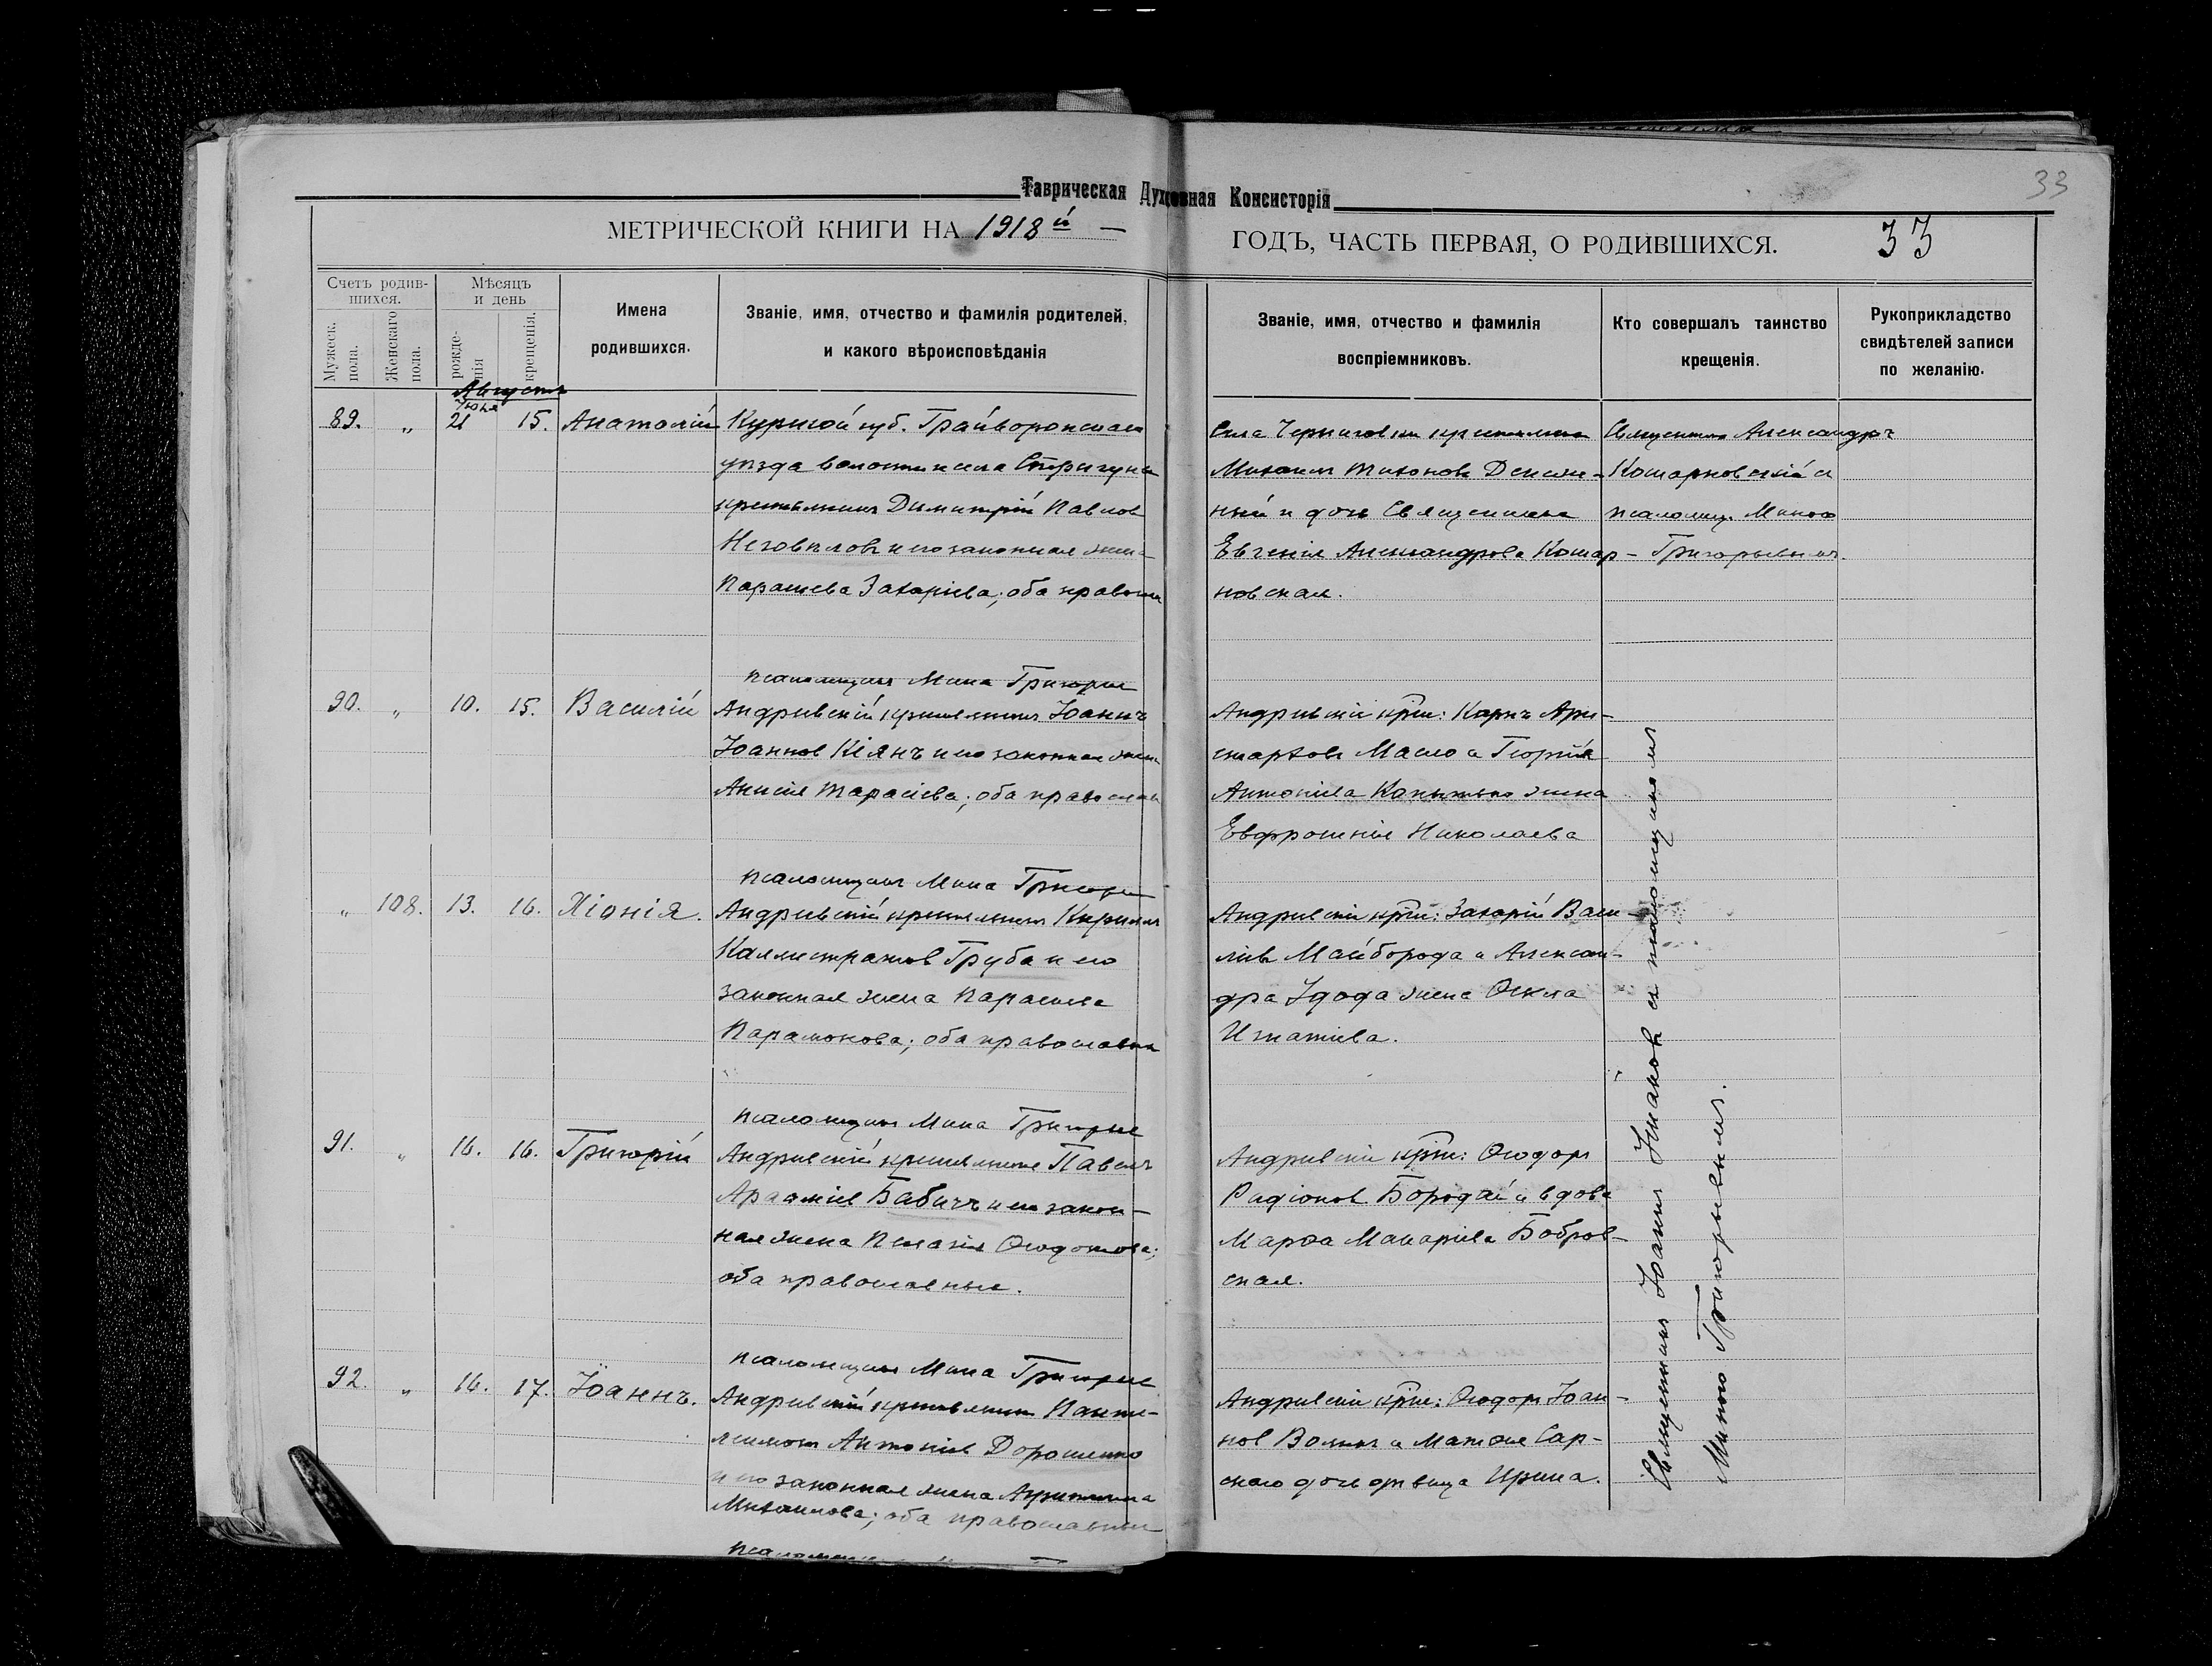 33
Таврическая Духовная Консисторія
МЕТРИЧЕСКОЙ КНИГИ НА 1918й — ГОДЪ, ЧАСТЬ ПЕРВАЯ, О РОДИВШИХСЯ. 33
Счетъ родив-
шихся.
Мужеск.
пола.
Женскаго
пола.
Мѣсяцъ
и день
рожде-
нія
крещенія.
Имена
родившихся.
Званіе, имя, отчество и фамилія родителей,
и какого вѣроисповѣданія
Званіе, имя, отчество и фамилія
воспріемниковъ.
Кто совершалъ таинство
крещенія.
Рукоприкладство
свидѣтелей записи
по желанію.
Августъ
89. „ 21 15. Анатолій
Курской губ. Грайворонскаго
уѣзда волости и села Стригуны
крестьянинъ Димитрій Павлов
и его законная жена
Параскева Захаріева; оба правосла
Села Черниговки крестьянинъ
Михаилъ Тихоновъ
и дочь Священника
Евгенія Александрова Комар-
новская.
Священникъ Александръ
Комарновскій съ
псаломщ. Миною
Григорьевымъ.
псаломщикъ Мина Григорье
90. „ 10. 15. Василій
Андреевскій крестьянинъ Іоаннъ
Іоаннов Кіянъ и его законная жена
Анисія Тарасіева; оба православ
Андреевскіе крѣст: Карпъ Ари-
старховъ Масло и Георгія
Антоніева жена
Евфросинія Николаева
псаломщикъ Мина Григорье
„ 108. 13. 16. Хіонія.
Андреевскій крестьянинъ Кириллъ
Каллистратов Груба и его
законная жена Параскева
Парамонова; оба православны
Андреевскіе крѣст: Захарій Васи-
ліев Майборода и Алексан-
дра Удода жена Ѳекла
Игнатіева.
псаломщикъ Мина Григорье
91. „ 16. 16. Григорій
Андреевскій крестьянинъ Павелъ
Бабичъ и его закон-
ная жена Пелагія Ѳеодотова;
оба православные.
Андреевскіе крѣст: Ѳеодоръ
Радіонов Бородай и вдова
Марѳа Макаріева Бобров-
ская.
псаломщикъ Мина Григорье
92. „ 16. 17. Іоаннъ.
Андреевскій крестьянинъ Панте-
леимонъ Антоніев Дорошенко
и его законная жена Агрипина
Михаилова; оба православны
Андреевскіе крѣст: Ѳеодоръ Іоан-
нов Волкъ и Матѳея Сар-
скаго дочь дѣвица Ирина.
Священникъ Іоаннъ съ псаломщикомъ
Миною Григорьевымъ.